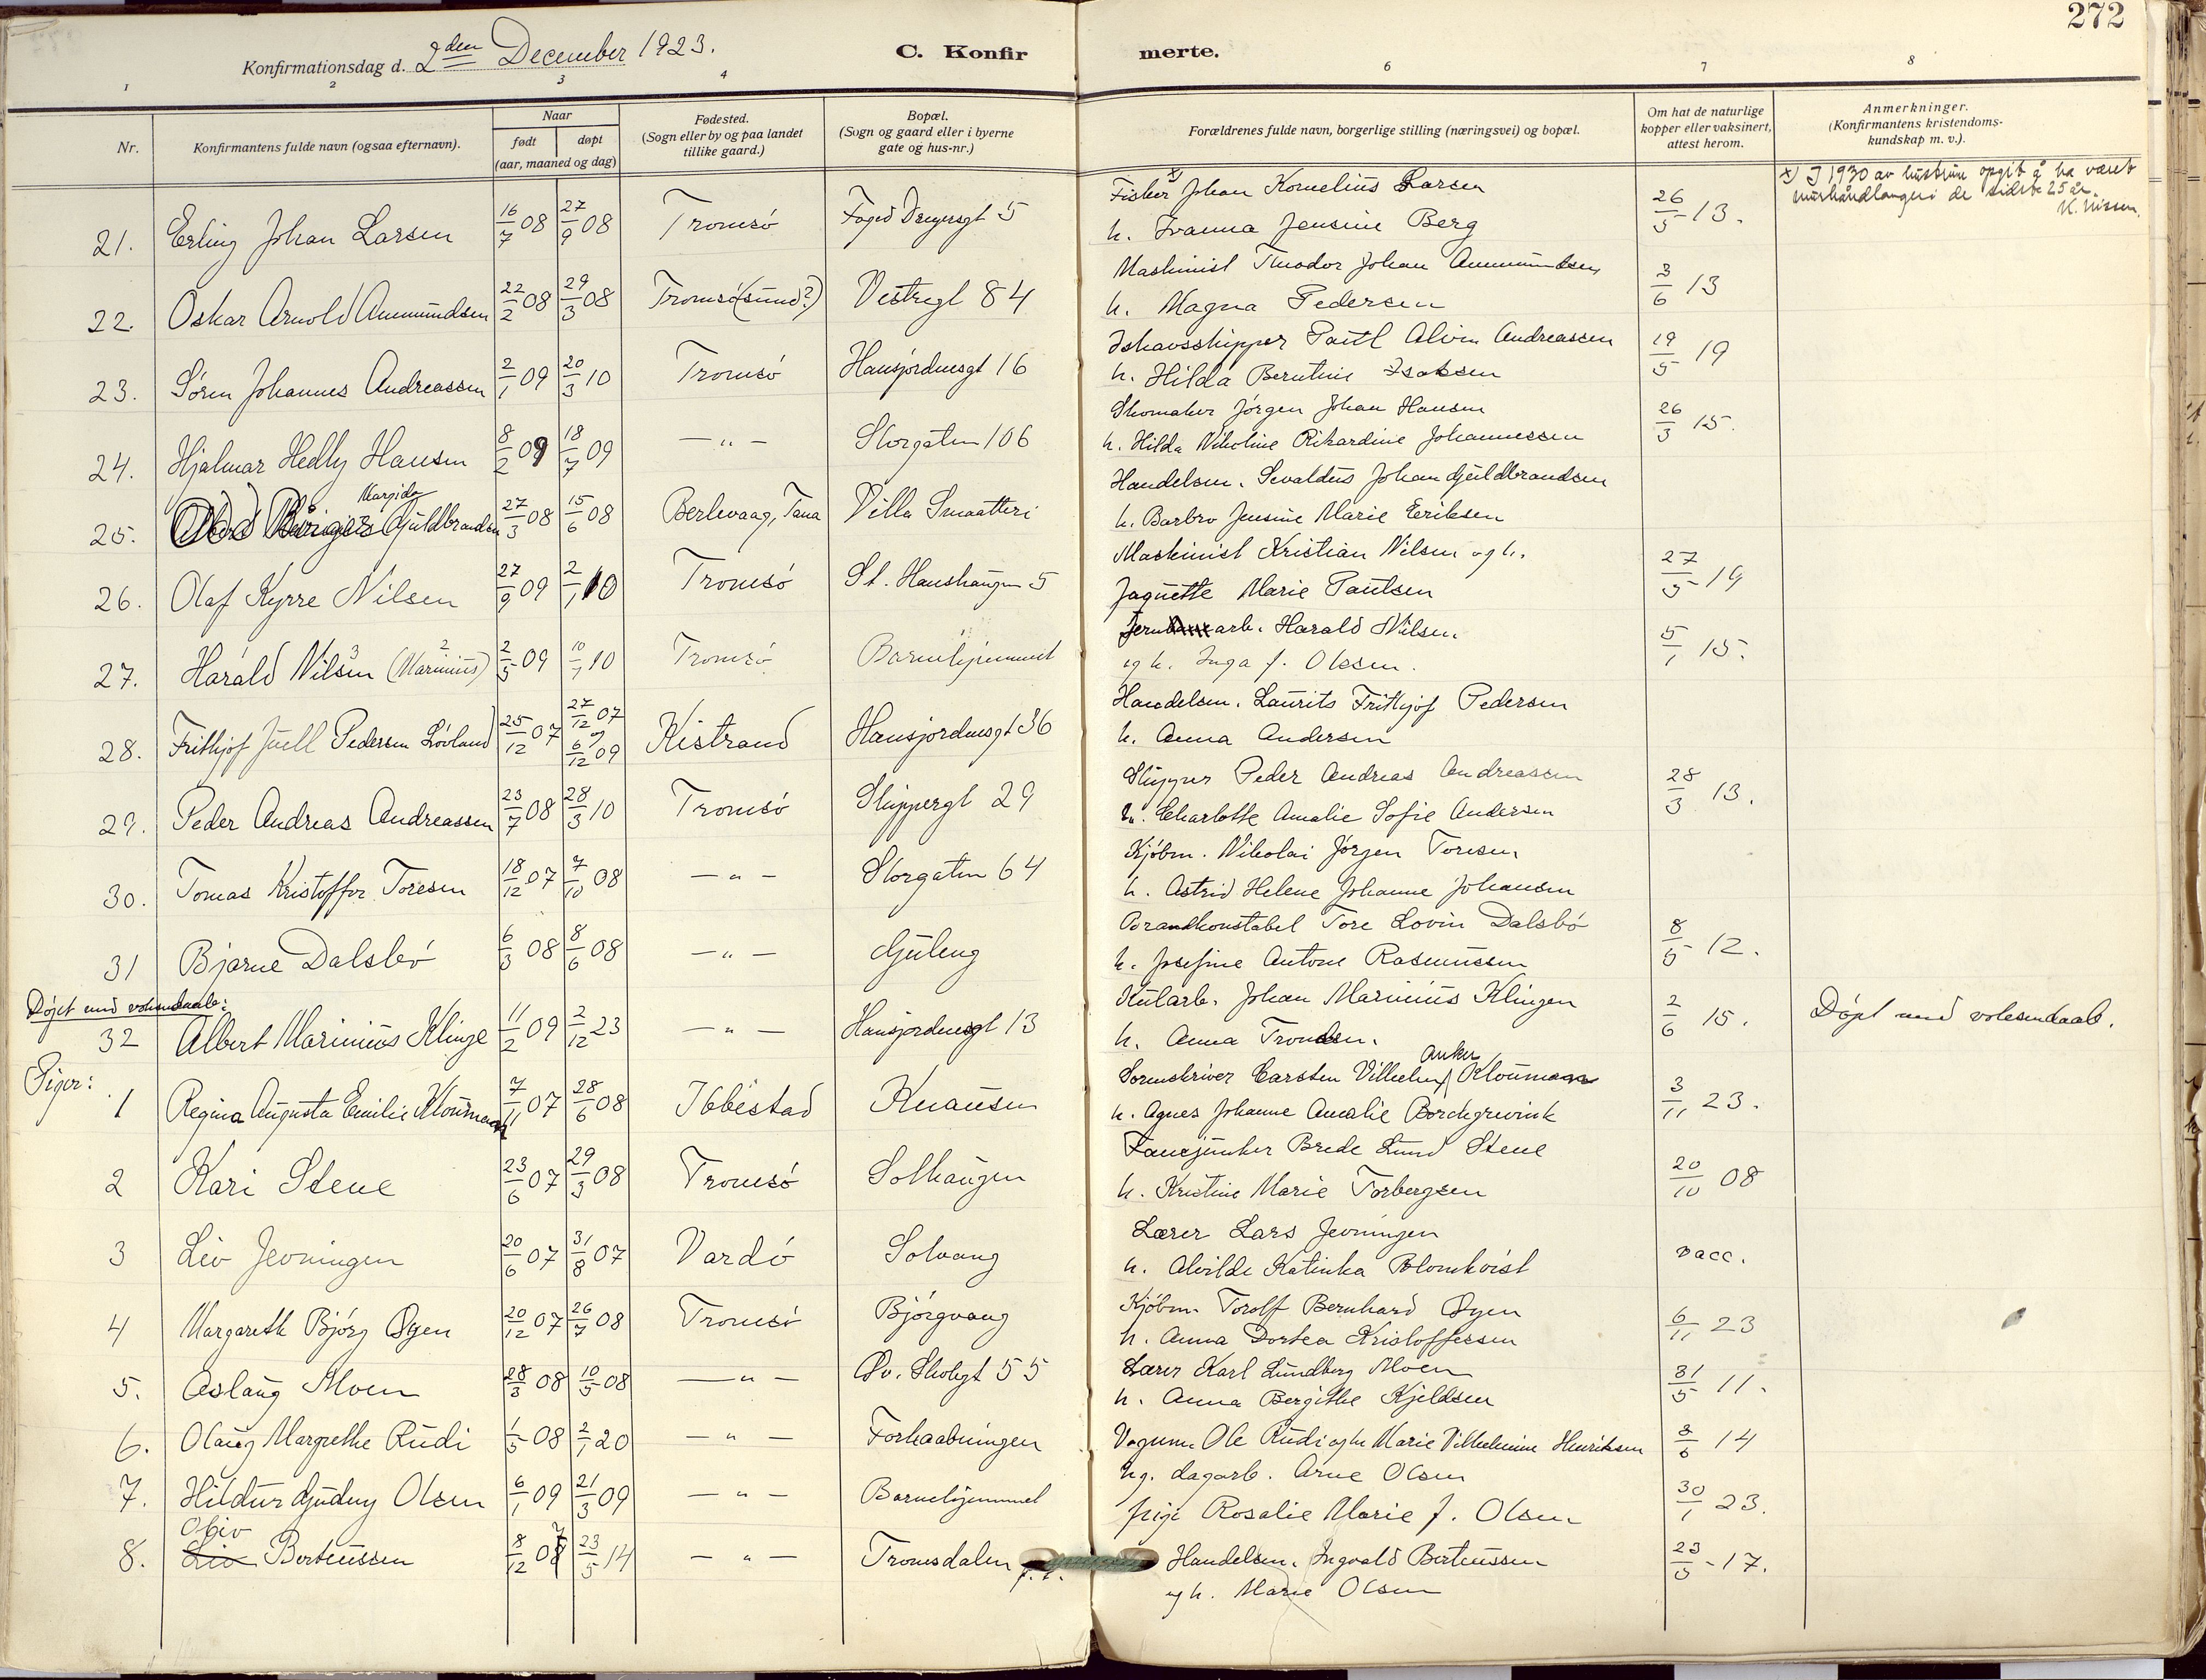 272
Konfirmationsdag d. 2den December 1923.
C. Konfir merte.
1 2 3 4 6 7 8
Nr.
Konfirmantens fulde navn (ogsaa efternavn).
Naar
født døpt
(aar, maaned og dag)
Fødested.
(Sogn eller by og paa landet
tillike gaard.)
Bopæl.
(Sogn og gaard eller i byerne
gate og hus-nr.)
Forældrenes fulde navn, borgerlige stilling (næringsvei) og bopæl.
Om hat de naturlige
kopper eller vaksinert,
attest herom.
Anmerkninger.
(Konfirmantens kristendoms-
kundskap m. v.).
x) I 1930 av hustrun opgit å ha været
murhåndlanger i de sidste 25 år.
K. Nissen.
21. Erling Johan Larsen 16/7 08 27/9 08 Tromsö Foged Dreyersgt 5 Fisker x) Johan Kornelius Larsen 26/5 - 13.
h. Ivanna Jensine Berg
22. Oskar Arnold Ammundsen 22/2 08 29/3 08 Tromsö(sund?) Vestregt 84 Maskinist Theodor Johan Ammundsen 3/6 13
h. Magna Pedersen
23. Sören Johannes Andreassen 2/1 09 20/3 10 Tromsö Hansjordnesgt 16 Ishavsskipper Paul Alvin Andreassen 19/5 19
h. Hilda Berntine Isaksen
24. Hjalmar Hedly Hansen 8/2 09 18/7 09 — " — Storgaten 106 Skomaker Jörgen Johan Hansen 26/3 15.
h. Hilda Nikoline Rikardine Johannessen
25. Margido Guldbrandsen 27/3 08 15/6 08 Berlevaag, Tana Villa Smaatteri Handelsm. Sevaldus Johan Guldbrandsen
h. Barbro Jensine Marie Eriksen
26. Olaf Kyrre Nilsen 27/9 09 2/1 10 Tromsö St. Hanshaugen 5 Maskinist Kristian Nilsen og h. 27/5 - 19
Jaquette Marie Paulsen
27. Harald Nilsen 3 (Marinius) 2 2/5 09 10/1 10 Tromsö Barnehjemmet Jern arb. Harald Nilsen. 5/1 15.
og h. Inga f. Olssen.
28. Frithjof Juell Pedersen Lövland) 25/12 07 27/12 07 og 6/12 09 Kistrand Hansjordnesgt 36 Handelsm. Laurits Frithjof Pedersen
h. Anna Andersen
29. Peder Andreas Andreassen 23/7 08 28/3 10 Tromsö Skippergt 29 Skipper Peder Andreas Andreassen 28/3 13.
h. Charlotte Amalie Sofie Andersen
30. Tomas Kristoffer Toresen 18/12 07 7/10 08 — " — Storgaten 64 Kjöbm. Nikolai Jörgen Toresen
h. Astrid Helene Johanne Johansen
31 Bjarne Dalsbö 6/3 08 8/6 08 — " — Guleng Brandkonstabel Tore Lovin Dalsbö 8/5 - 12.
h. Josefine Antone Rasmussen
Döpt med voksendaab:
32 Albert Marinius Klinge 11/2 09 2/12 23 — " — Hansjordnesgt 13 Kularb. Johan Marinius Klingen 2/6 15. Döpt med voksendaab.
h. Anna Trondsen.
Piger:
1 Regina Augusta Emilie Kloumann 7/11 07 28/6 08 Ibbestad Knausen Sorenskriver Carsten Vilhelm Anker Kloumann 3/11 23.
h. Agnes Johanne Amalie Borchgrevink
2 Kari Stene 23/6 07 29/3 08 Tromsö Solhaugen Fanejunker Brede Lund Stene 20/10 08
h. Kristine Marie Torbergsen
3 Liv Jevningen 20/6 07 31/8 07 Vardö Solvang Lærer Lars Jevningen vacc.
h. Alvilde Katinka Blomkvist
4 Margareth Björg Øyen 20/12 07 26/7 08 Tromsö Björgvang Kjöbm. Torolf Bernhard Øyen 6/11 23
h. Anna Dortea Kristoffersen
5. Aslaug Moen 28/3 08 10/5 08 — " — Øv. Skolegt 55 Lærer Karl Lundberg Moen 31/5 11.
h. Anna Bergithe Kjeldsen
6. Olaug Margrethe Rudi 1/5 08 2/1 20 — " — Forhaabningen Vognm. Ole Rudi og h. Marie Vilhelmine Henriksen 3/6 14
7. Hildur Gudny Olsen 6/1 09 21/3 09 — " — Barnehjemmet Ug. dagarb. Arne Olsen 30/1 23.
pige Rosalie Marie f. Olsen
8. Liv Oliv Berteussen 8/12 07 23/5 14 — " — Tromsdalen Handelsm. Ingvald Berteussen 23/5 - 17.
og h. Marie Olsen